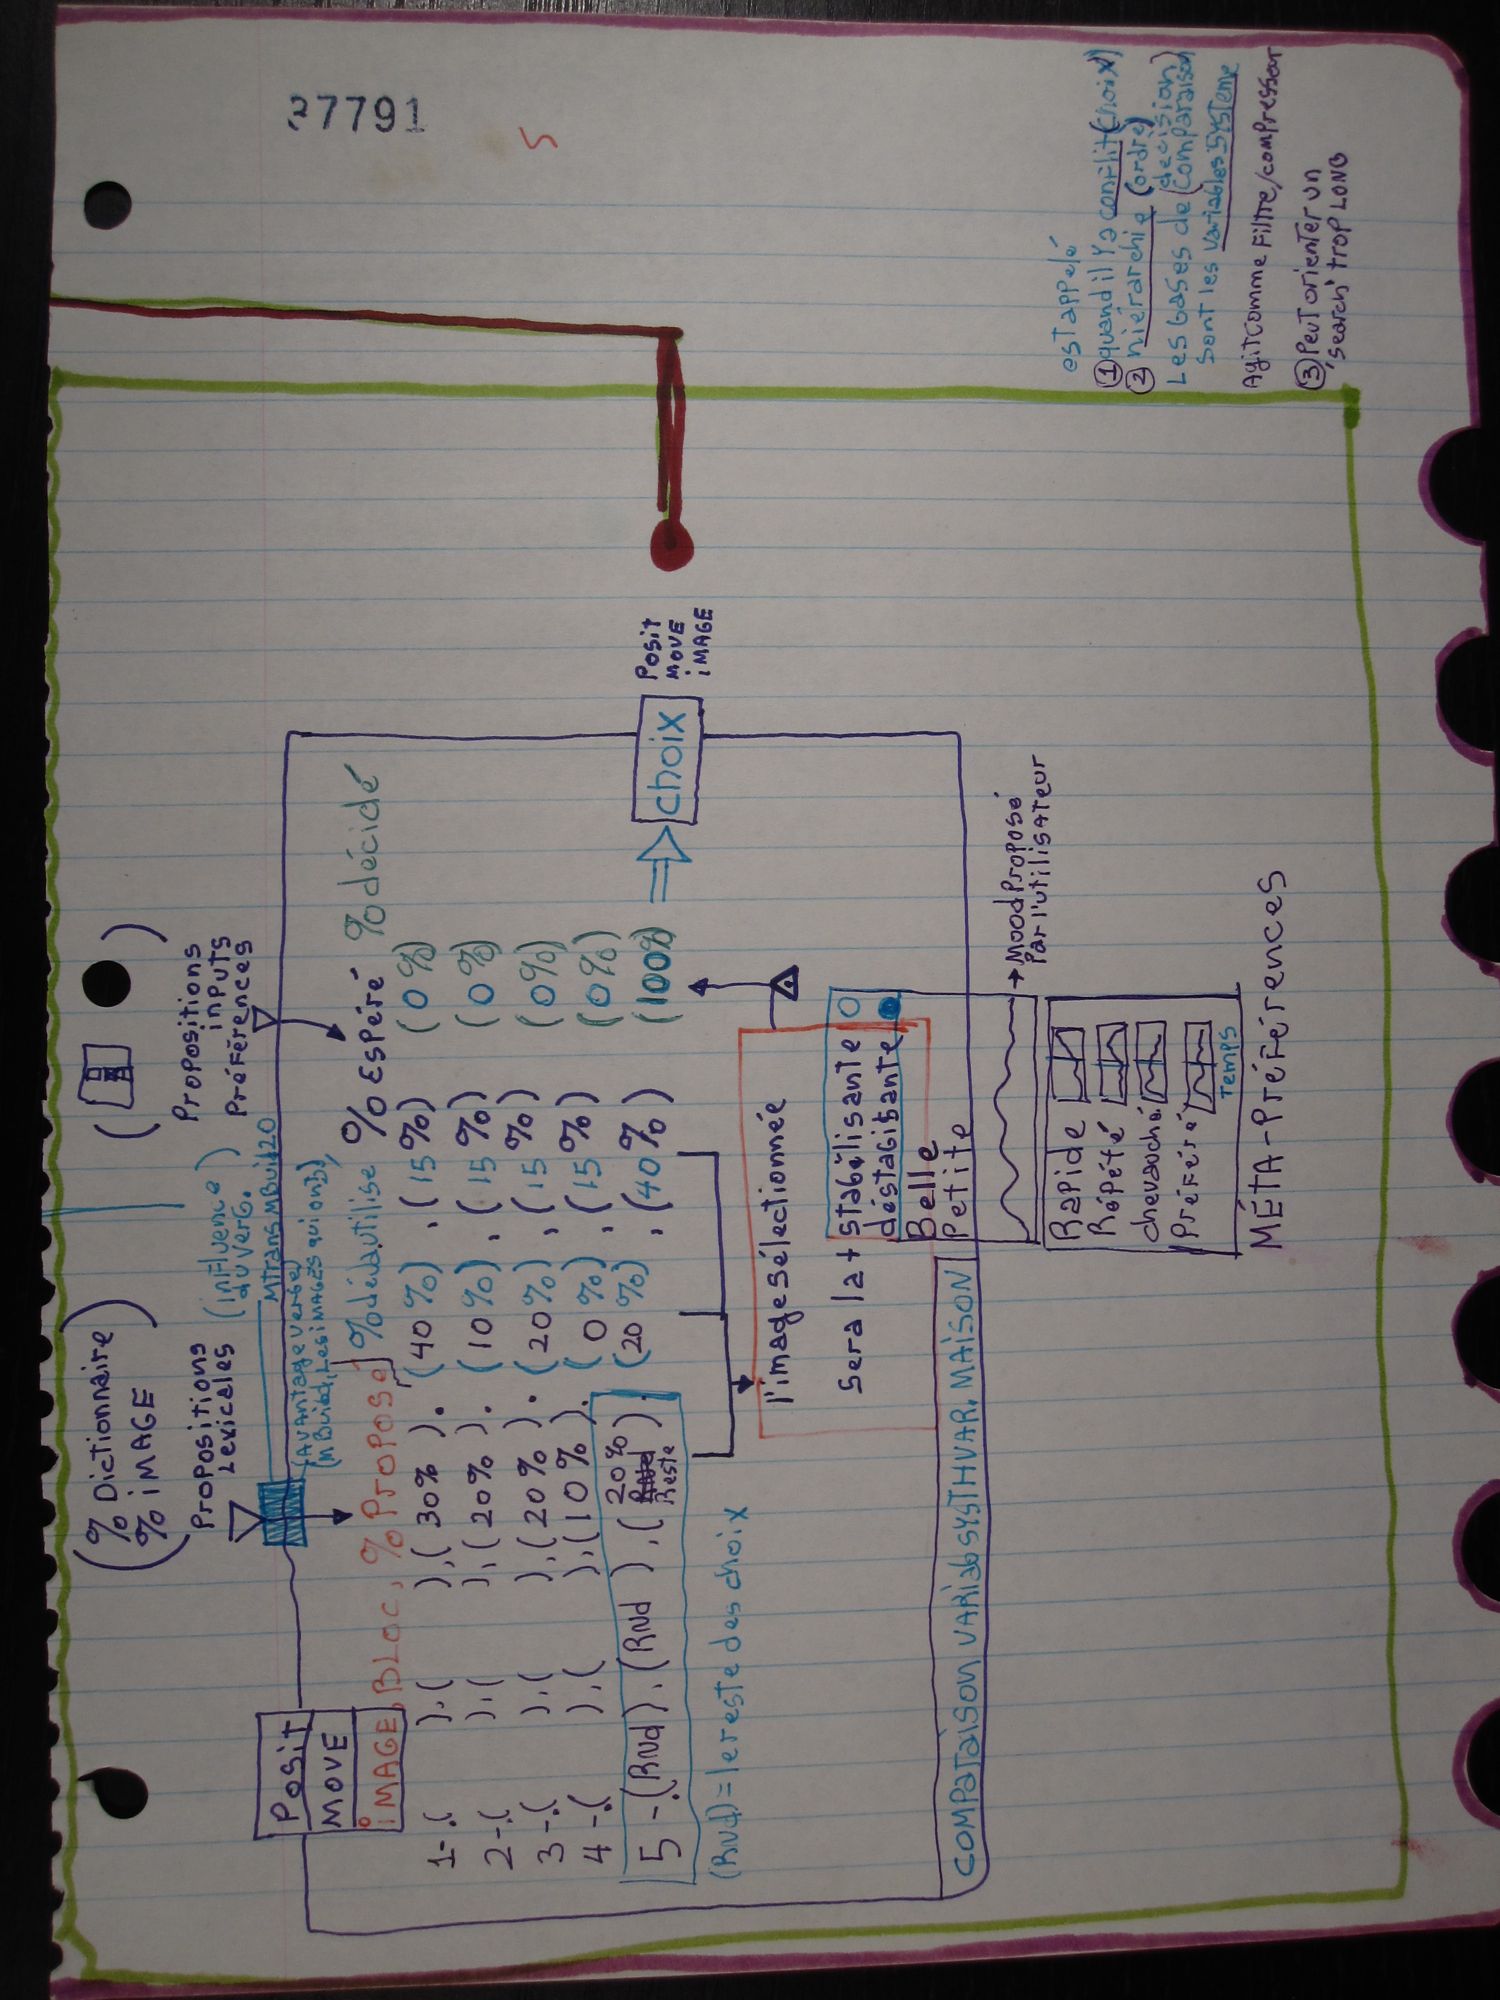 37791
5
(% Dictionnaire)
(% iMAGE)
Propositions
Lexicales
(influence
du verb.)
Mtrans MBuild20
Propositions
inputs
Préférences
(Avantage verbe)
Posit
MOVE
iMAGE, BLOC, % Proposé, % déjà utilisé % Espéré % décidé
1-.( ).( ).( 30% ). (40%) .(15%) (0%)
2-.( ).( ).( 20% ). (10%) .(15%) (0%)
3-.( ).( ).( 20% ). (20%) .(15%) (0%)
4-.( ).( ).( 10% ). (0%) .(15%) (0%)
5-.(RNd).(RNd).(20% Reste). (20%) .(40%) (100%) ⇒ choix
Posit
MOVE
iMAGE
(RNd)=le reste des choix
l'image sélectionnée
sera la + stabilisante
déstabilisante
Belle
Petite
COMPARAISON VARiablSYSTHVAR. MAiSON
→ Mood Proposé
Par l'utilisateur
Rapide
Répété
chevauché
Préféré
TEMPS
MÉTA-PréFérences
est appelé
① quand il y a conflit (choix)
② hiérarchie (ordre)
Les bases de (décision)
(comparaison)
sont les variables SYSTEME
Agit comme Filtre/compresseur
③ Peut orienter un
'search' trop LONG